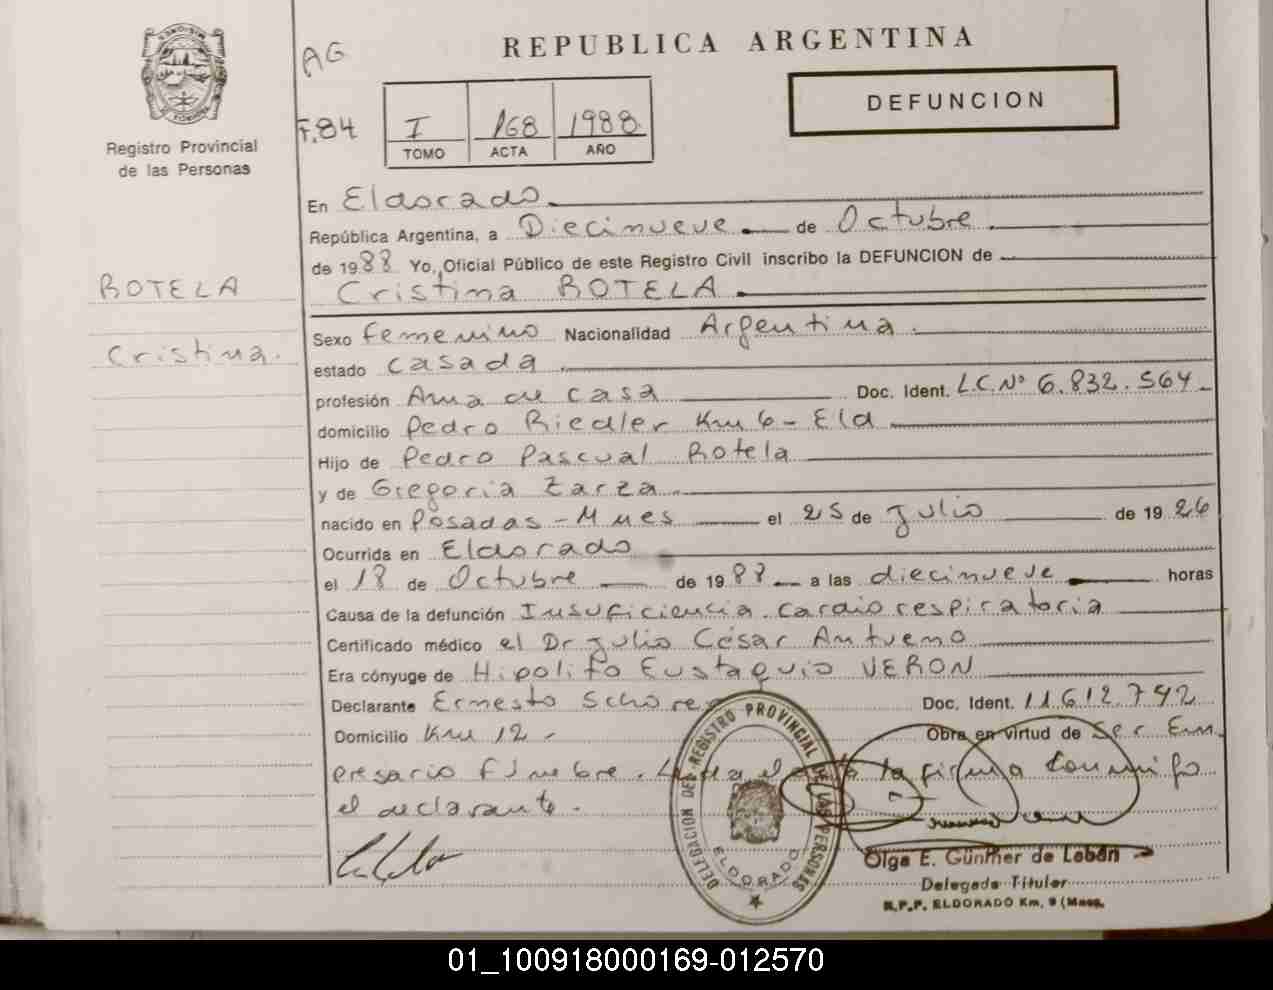 REPUBLICA ARGENTINA
AG
DEFUNCION
F.84
I 168 1988
TOMO ACTA AÑO
Registro Provincial
de las Personas
En Eldorado
República Argentina, a Diecinueve de Octubre
de 1988 Yo, Oficial Público de este Registro Civil inscribo la DEFUNCION de
ROTELA
Cristina ROTELA
Cristina.
Sexo Femenino Nacionalidad Argentina.
estado Casada
profesión Ama de casa Doc. Ident. L.C.Nº 6.832.564
domicilio Pedro Riedler Km 6 - Eld
Hijo de Pedro Pascual Rotela
y de Gregoria Zarza
nacido en Posadas - Mnes el 25 de Julio de 1926
Ocurrida en Eldorado
el 18 de Octubre de 1988 a las diecinueve horas
Causa de la defunción Insuficiencia Cardio respiratoria
Certificado médico el Dr Julio César Antueno
Era cónyuge de Hipolito Eustaquio VERON
Declarante Ernesto Doc. Ident. 11.612.742
Domicilio Km 12 - Obra en virtud de Ser Em
presario Fúnebre. la firma Conmigo
el declarante.
DELEGACION DEL REGISTRO PROVINCIAL DE LAS PERSONAS
ELDORADO
Olga E. Günther de Labán
Delegada Titular
R.P.P. ELDORADO Km. 9 (Mnes.
01_100918000169-012570